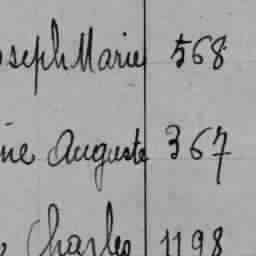 oseph Marie 568
ine Auguste 367
Charles 1198